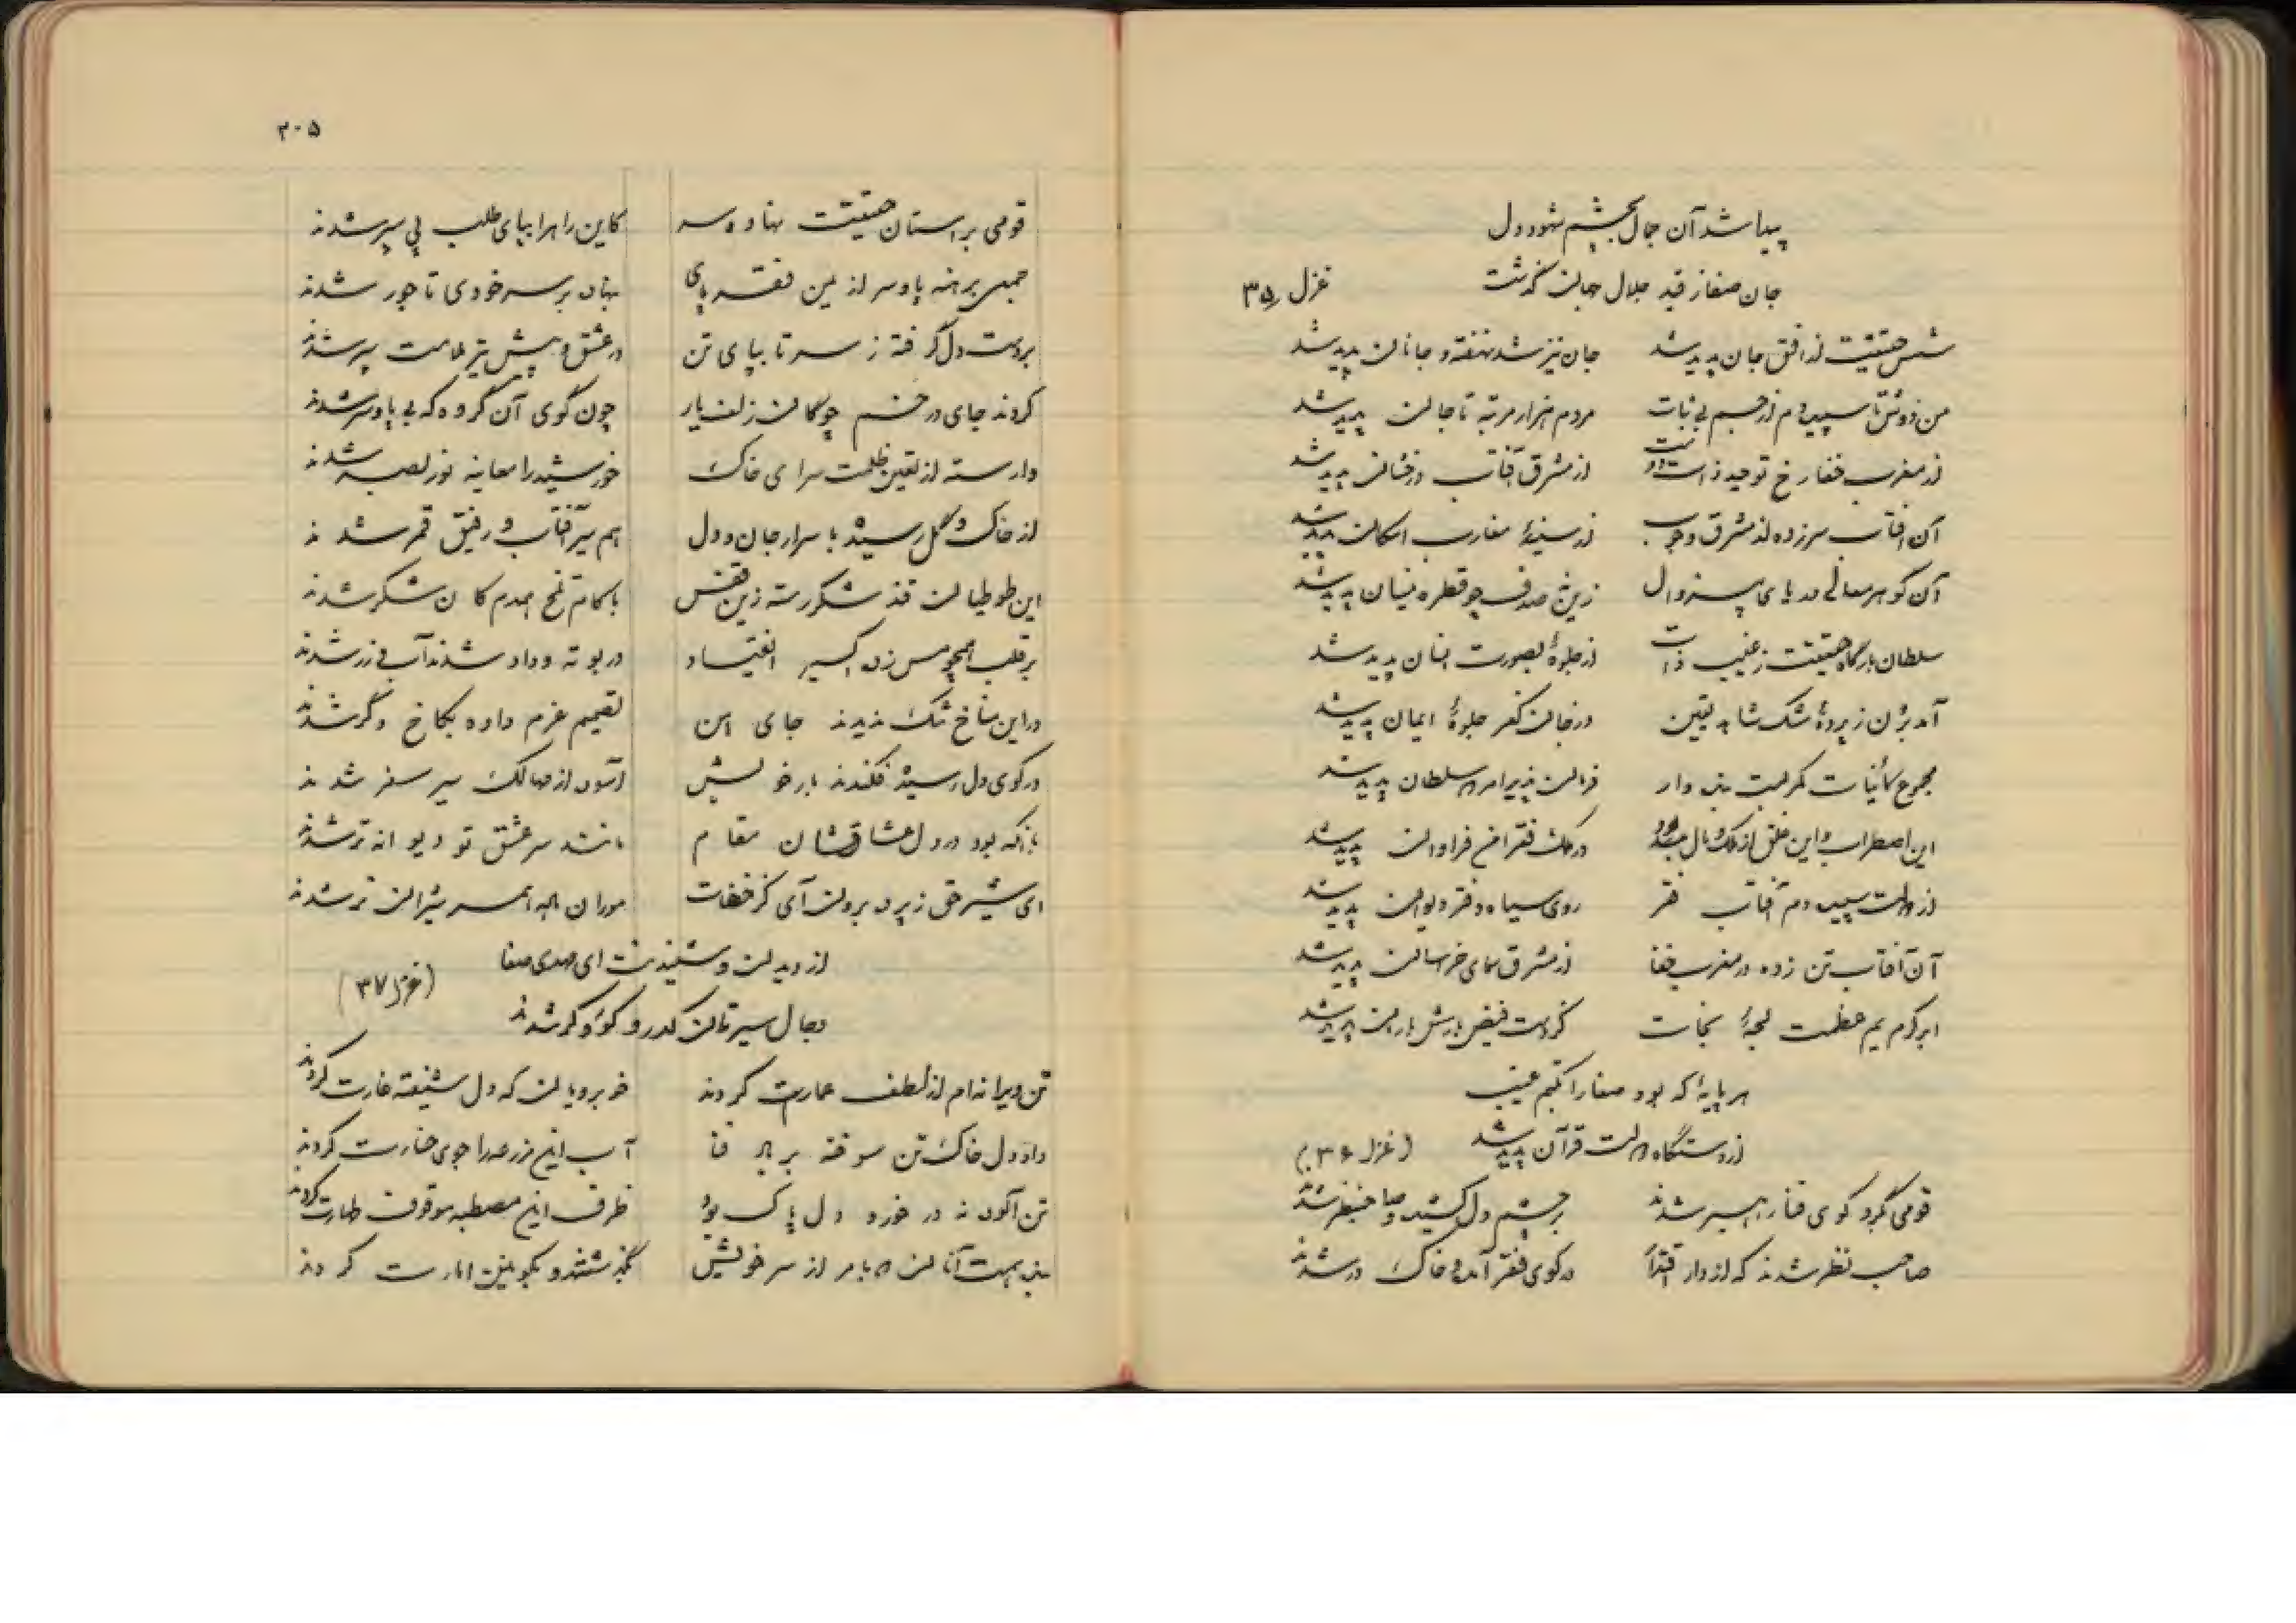 پیدا شد آن جمال بچشم شهود دل
جان صفا ز قید جلال جهان گذشت غزل ۳۵
شمس حقیقت از افق جان پدید شد جان نیز شد نهفته و جانان پدید شد
من ذوق تا سپیده دم از جسم بی ثبات مردم هزار مرتبه تا جان پدید شد
از مغرب خفا رخ توحید ذات از مشرق آفتاب درخشان پدید شد
آن آفتاب سرزده از مشرق وجوب از سینهٔ مغارب امکان پدید شد
آن گوهر معانی دریای زین صدف چو قطره نیسان پدید شد
سلطان بارگاه حقیقت ز غیب ذات از جلوهٔ بصورت انسان پدید شد
آمد برون ز پردهٔ شک شاهد یقین در جان کفر جلوهٔ ایمان پدید شد
مجموع کائنات کمر بست بنده وار فرمان پذیر امر سلطان پدید شد
این اضطراب و این قلق از ملک و مال بود در ملک فقر امن فراوان پدید شد
از دولت سپیده دم آفتاب فقر روی سیاه دفتر و دیوان پدید شد
آن آفتاب تن زده در مغرب خفا از مشرق سمای خراسان پدید شد
ابر کرم یم عظمت لجهٔ نجات کز دست فیض بارش باران پدید شد
هر پایهٔ که بود صفا را بچشم غیب
از دستگاه دولت قرآن پدید شد (غزل ۳۶)
قومی بگرد کوی فنا رهسپر شدند بر چشم دل کشیده و صاحبنظر شدند
صاحب نظر شدند که از دار اقتدا در کوی فقر آمده خاک در شدند
۲۰۵
قومی بر آستان حقیقت نهاده سر کاین راه را بپای طلب پی سپر شدند
جمعی برهنه پا و سر از یمن فقر پای بنهاده بر سر خودی تاجور شدند
بر دست دل گرفته ز سر تا بپای تن در عشق و پیش تیر ملامت سپر شدند
کردند جای در خم چوگان زلف یار چون گوی آن گروه که بی پا و سر شدند
وارسته از تعین ظلمت سرای خاک خورشید را معاینه نور بصر شدند
از خاک و گل رسیده باسرار جان و دل هم سیر آفتاب و رفیق قمر شدند
این طوطیان قند شکر رسته زین قفس با کام تلخ همدم کان شکر شدند
بر قلب همچو مس زده اکسیر انقیاد در بوته وداد شدند آب و زر شدند
در این مناخ تنگ ندیدند جای امن تصمیم عزم داده بکاخ دگر شدند
در کوی دل رسیده فکندند بار خویش آسوده از مهالک سیر سفر شدند
با آنکه بود در دل عشاقشان مقام مانند سر عشق تو دیوانه تر شدند
ای شیر حق ز پرده برون آی کز خفات موران همه بر سر شیران نر شدند
از دیدن و شنیدنت ای مهدی صفا
دجال سیرتان کدر و کور و کر شدند (غزل ۳۷)
تن ویرانه ام از لطف عمارت کردند خوبرویان که دل شیفته غارت کردند
داد دل خاک تن سوخته بر باد فنا آب این مزرعه را جوی خسارت کردند
تن آلوده نه در خورد دل پاک بود ظرف این مصطبه موقوف طهارت کردند
بنده همت آنان که ما و من از سر خویش بگذشتند و بکونین امارت کردند